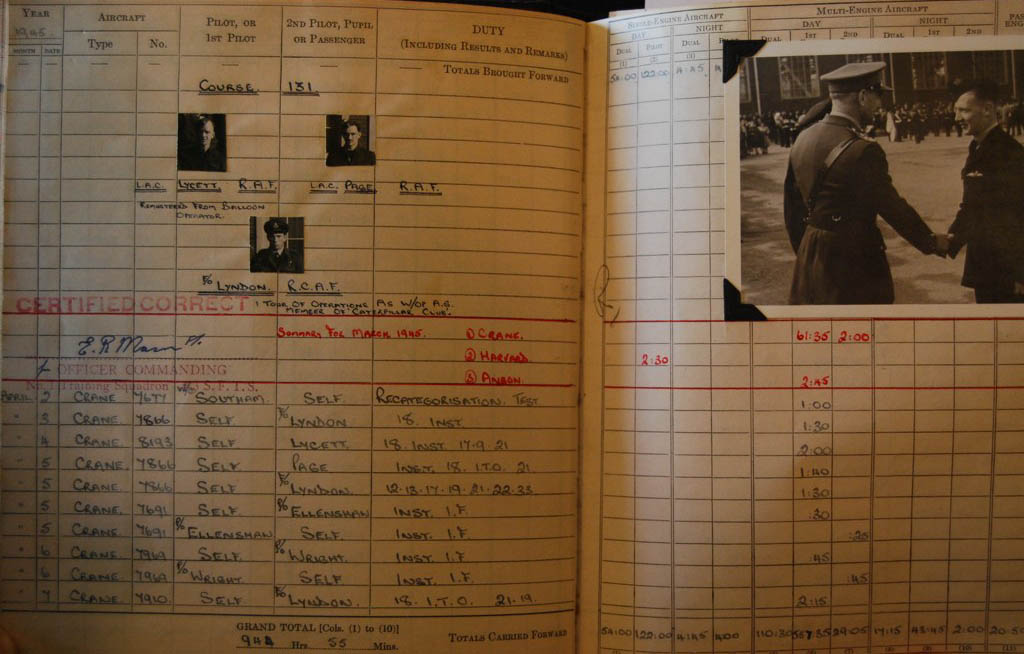 YEAR AIRCRAFT PILOT, OR 1ST PILOT 2ND PILOT, PUPIL OR PASSENGER DUTY (INCLUDING RESULTS AND REMARKS)
1945.
MONTH DATE Type No.
TOTALS BROUGHT FORWARD
COURSE 131
L.A.C. LYCETT R.A.F. L.A.C. PAGE R.A.F.
REMUSTERED FROM BALLOON
OPERATOR.
F/O LYNDON. R.C.A.F.
1 TOUR OF OPERATIONS AS W/OP A.G.
MEMBER OF CATERPILLAR CLUB.
CERTIFIED CORRECT
SUMMARY FOR MARCH 1945. ① CRANE.
② HARVARD
③ ANSON.
OFFICER COMMANDING
Training Squadron S.F.T.S.
APRIL 2 CRANE 7677 SOUTHAM. SELF. RECATEGORISATION. TEST
" 3 CRANE. 7866 SELF F/O LYNDON 18. INST.
" 4 CRANE. 8193 SELF LYCETT. 18. INST. 17.9.21
" 5 CRANE. 7866 SELF PAGE INST. 18. I.T.O. 21.
" 5 CRANE. 7866 SELF F/O LYNDON. 12-13-17-19-21-22-33
" 5 CRANE. 7691 SELF. P/O ELLENSHAN INST. I.F.
" 5 CRANE. 7691 P/O ELLENSHAN SELF. INST. I.F
" 6 CRANE. 7969 SELF. P/O WRIGHT. INST. I.F
" 6 CRANE. 7969 P/O WRIGHT. SELF INST. I.F.
" 7 CRANE. 7910. SELF. F/O LYNDON. 18. I.T.O. 21-19.
GRAND TOTAL [Cols. (1) to (10)]
Hrs. 55 Mins.
TOTALS CARRIED FORWARD
SINGLE-ENGINE AIRCRAFT MULTI-ENGINE AIRCRAFT
DAY NIGHT DAY NIGHT
DUAL PILOT DUAL 1ST 2ND 1ST 2ND
(1) (2) (3)
54:00 122:00 4:45
61:35 2:00
2:30
2:45
1:00
1:30
2:00
1:40
1:30
:30
:25
:45
:45
2:15
54:00 122:00 4:45 4:00 110:30 557:35 29:05 17:15 43:45 2:00 20:50